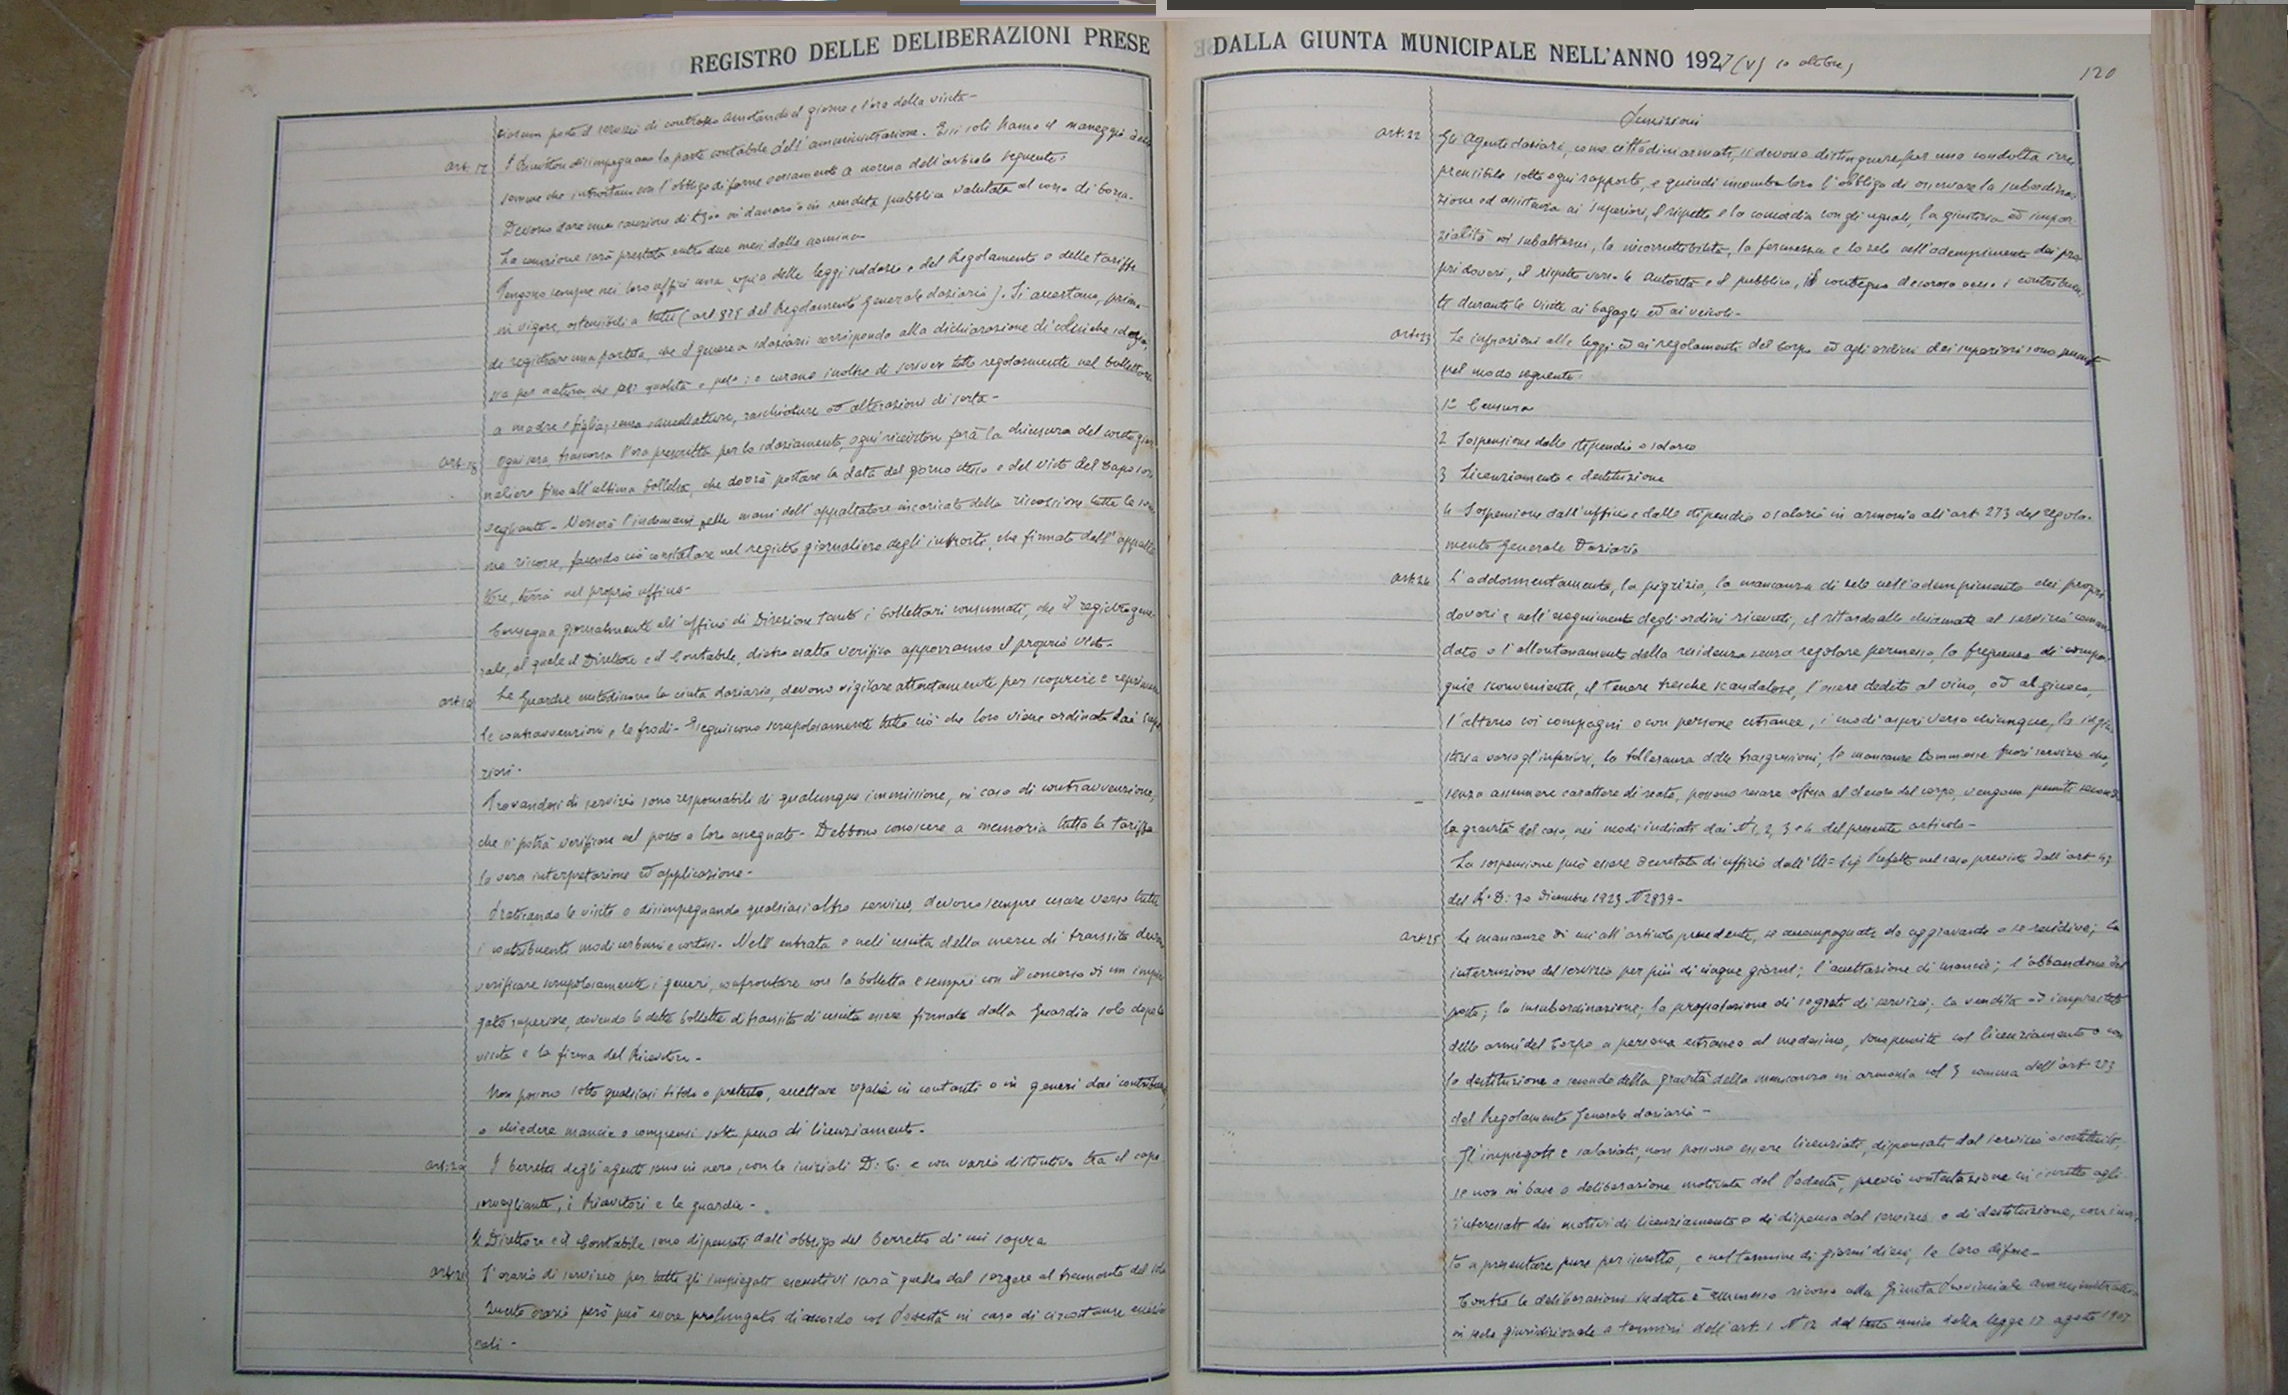 REGISTRO DELLE DELIBERAZIONI PRESE
ciascun posto il servizi di controllo annotando il giorno e l'ora della visita-
Art. 17 I Ricevitori disimpegnano la parte contabile dell'amministrazione. Essi soli hanno il maneggio delle
somme che introitano con l'obbligo di farne versamento a norma dell'articolo seguente.
Devono dare una cauzione di in danaro o in rendita pubblica valutata al corso di borsa.
La cauzione sarà prestata entro due mesi dalla nomina-
Tengono sempre nei loro uffici una copia delle leggi sul dazio e del Regolamento e delle tariffe
in vigore, ostensibili a tutti (art 875 del Regolamento Generale daziario). Si accertano, prima
di registrare una partita, che il genere a sdaziarsi corrisponda alla dichiarazione di
sia per natura, che per qualità e peso; e curano inoltre di scrivere tutto regolarmente nel bollettario
a madre e figlia, senza cancellature, raschiature od alterazioni di sorta-
Art. 18 Ogni sera, trascorsa l'ora prescritta per lo sdaziamento, ogni ricevitore farà la chiusura del conto gior
naliero fino all'ultima bolletta, che dovrà portare la data del giorno stesso e del visto del Capo sor
vegliante- Verserà l'indomani nelle mani dell'appaltatore incaricato della riscossione tutte le som
me riscosse, facendo ciò constatare nel registro giornaliero degli introiti, che firmato dall'appalta
tore, terrà nel proprio ufficio-
Consegna giornalmente all'ufficio di Direzione tanto i bollettari consumati, che il registro gior
nale, al quale il Direttore e il Contabile, dietro esatta verifica apporranno il proprio visto-
Art. 19 Le Guardie custodiscono la cinta daziaria, devono vigilare attentamente per scoprire e reprimere
le contravvenzioni e le frodi- Eseguiscono scrupolosamente tutto ciò che loro viene ordinato dai supe
riori-
Trovandosi di servizio sono responsabili di qualunque immissione, in caso di contravvenzione,
che si potrà verificare nel posto a loro assegnato- Debbono conoscere a memoria tutta la tariffa
la vera interpretazione ed applicazione-
Praticando le visite o disimpegnando qualsiasi altro servizio, devono sempre usare verso tutti
i contribuenti modi urbani e cortesi- Nell'entrata e nell'uscita della merce di transito devono
verificare scrupolosamente i generi, confrontare con la bolletta e sempre con il concorso di un impie
gato superiore, dovendo le dette bollette di transito di uscita essere firmate dalla Guardia solo dopo la
visita e la firma del Ricevitore-
Non possono sotto qualsiasi titolo o pretesto, accettare regalie in contanti o in generi dai contribuenti,
o chiedere mancie o compensi sotto pena di licenziamento-
Art. 20 I berretti degli agenti sono in nero, con le iniziali D: C. e con vario distintivo tra il capo
sorvegliante, i Ricevitori e le guardie-
Il Direttore e il Contabile sono dispensati dall'obbligo del berretto di cui sopra
Art. 21 L'orario di servizio per tutti gli impiegati esecutivi sarà quello dal sorgere al tramonto del sole
Questo orario però può essere prolungato di accordo col Podestà in caso di circostanze eccezio
nali-
DALLA GIUNTA MUNICIPALE NELL'ANNO 1927 (V) 10 ottobre)
120
Punizioni
Art. 22 Gli Agenti daziari, come cittadini armati, si devono distinguere per una condotta irre
prensibile sotto ogni rapporto, e quindi incombe loro l'obbligo di osservare la subordina
zione ed assistenza ai superiori, il rispetto e la concordia con gli uguali, la giustizia ed impar
zialità coi subalterni, la incorruttibilità, la fermezza e lo zelo nell'adempimento dei pro
pri doveri, il rispetto verso le autorità e il pubblico, il contegno decoroso verso i contribuen
ti durante le visite ai bagagli ed ai veicoli-
Art. 23 Le infrazioni alle leggi ed ai regolamenti del corpo ed agli ordini dei superiori sono punite
nel modo seguente:
1° Censura
2 Sospensione dallo stipendio o salario
3 Licenziamento e destituzione
4 Sospensione dall'ufficio e dallo stipendio o salario in armonia all'art 273 del regola-
mento Generale Daziario
Art. 24 L'addormentamento, la pigrizia, la mancanza di zelo nell'adempimento dei propri
doveri e nell'eseguimento degli ordini ricevuti, il ritardo alle chiamate al servizio coman
dato o l'allontanamento dalla residenza senza regolare permesso, la frequenza di compa-
gnie sconveniente, il tenere tresche scandalose, l'essere dedito al vino, od al giuoco,
l'alterco coi compagni o con persone estranee, i modi aspri verso chiunque, la ingiu
stizia verso gl'inferiori, la tolleranza delle trasgressioni, le mancanze commesse fuori servizio che,
senza assumere carattere di reato, possono recare offesa al decoro del corpo, vengono puniti secondo
la gravità del caso, nei modi indicati dai N 1, 2, 3 e 4 del presente articolo-
La sospensione può essere decretata di ufficio dall'Ill= Sig Prefetto nel caso previsto dall'art
del R. D: 30 Dicembre 1923 N 2839-
Art. 25 Le mancanze di cui all'articolo precedente, se accompagnate da aggravante o se recidive; la
interruzione del servizio per più di cinque giorni; l'accettazione di mancie; l'abbandono del
posto; la insubordinazione; la propalazione di segreti di servizio; la vendita od imprestito
delle armi del Corpo a persona estranea al medesimo, sono punite col licenziamento o con
la destituzione a seconda della gravità della mancanza in armonia col 3 comma dell'art 273
del Regolamento Generale daziario-
Gl'impiegati e salariati, non possono essere licenziati, dispensati dal servizio o destituiti,
se non in base a deliberazione motivata del Podestà, previa contestazione in iscritto agli
interessati dei motivi di licenziamento o di dispensa dal servizio o di destituzione, con invi
to a presentare pure per iscritto, e nel termine di giorni dieci, le loro difese-
Contro le deliberazioni suddette è ammesso ricorso alla Giunta Provinciale amministrativa
in sede giurisdizionale a termini dell'art. 1 N 12 del testo unico della legge 17 agosto 1907